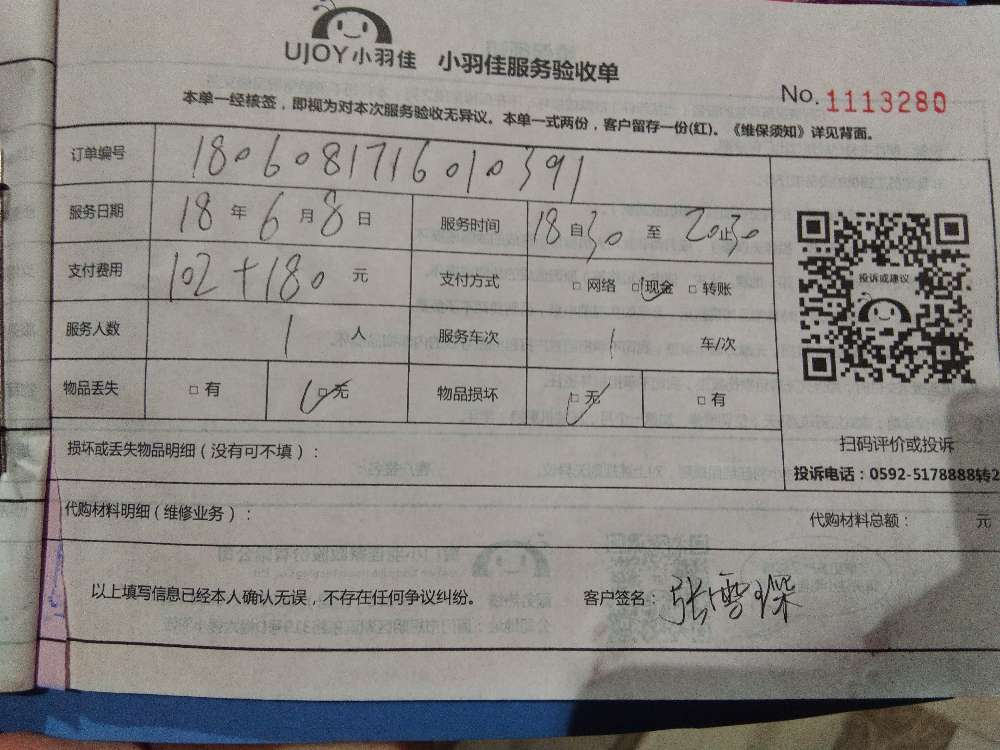 UJOY小羽佳 小羽佳服务验收单
No. 1113280
本单一经核签，即视为对本次服务验收无异议。本单一式两份，客户留存一份(红)。《维保须知》详见背面。
订单编号 1806081716010391
服务日期 18 年 6 月 8 日 服务时间 18 自 30 至 20 止 30
支付费用 102+180 元 支付方式 □ 网络 □ 现金 □ 转账
服务人数 1 人 服务车次 1 车/次
物品丢失 □ 有 □ 无 物品损坏 □ 无 □ 有
投诉或建议
扫码评价或投诉
投诉电话：0592-5178888转2
损坏或丢失物品明细（没有可不填）：
代购材料明细（维修业务）： 代购材料总额： 元
以上填写信息已经本人确认无误，不存在任何争议纠纷。 客户签名：张雪琛